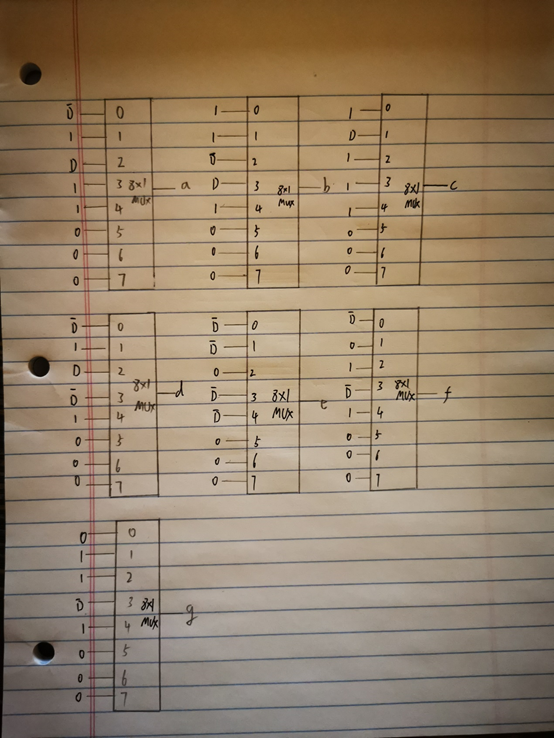 D̄ 0 1 0 1 0
1 1 1 1 D 1
D 2 D̄ 2 1 2
1 3 8x1 a D 3 8x1 b 1 3 8x1 c
1 4 MUX 1 4 MUX 1 4 MUX
0 5 0 5 0 5
0 6 0 6 0 6
0 7 0 7 0 7
D̄ 0 D̄ 0 D̄ 0
1 1 D̄ 1 0 1
D 2 0 2 1 2
D̄ 3 8x1 d D̄ 3 8x1 e D̄ 3 8x1 f
1 4 MUX D̄ 4 MUX 1 4 MUX
0 5 0 5 0 5
0 6 0 6 0 6
0 7 0 7 0 7
0 0
1 1
1 2
D̄ 3 8x1 g
1 4 MUX
0 5
0 6
0 7